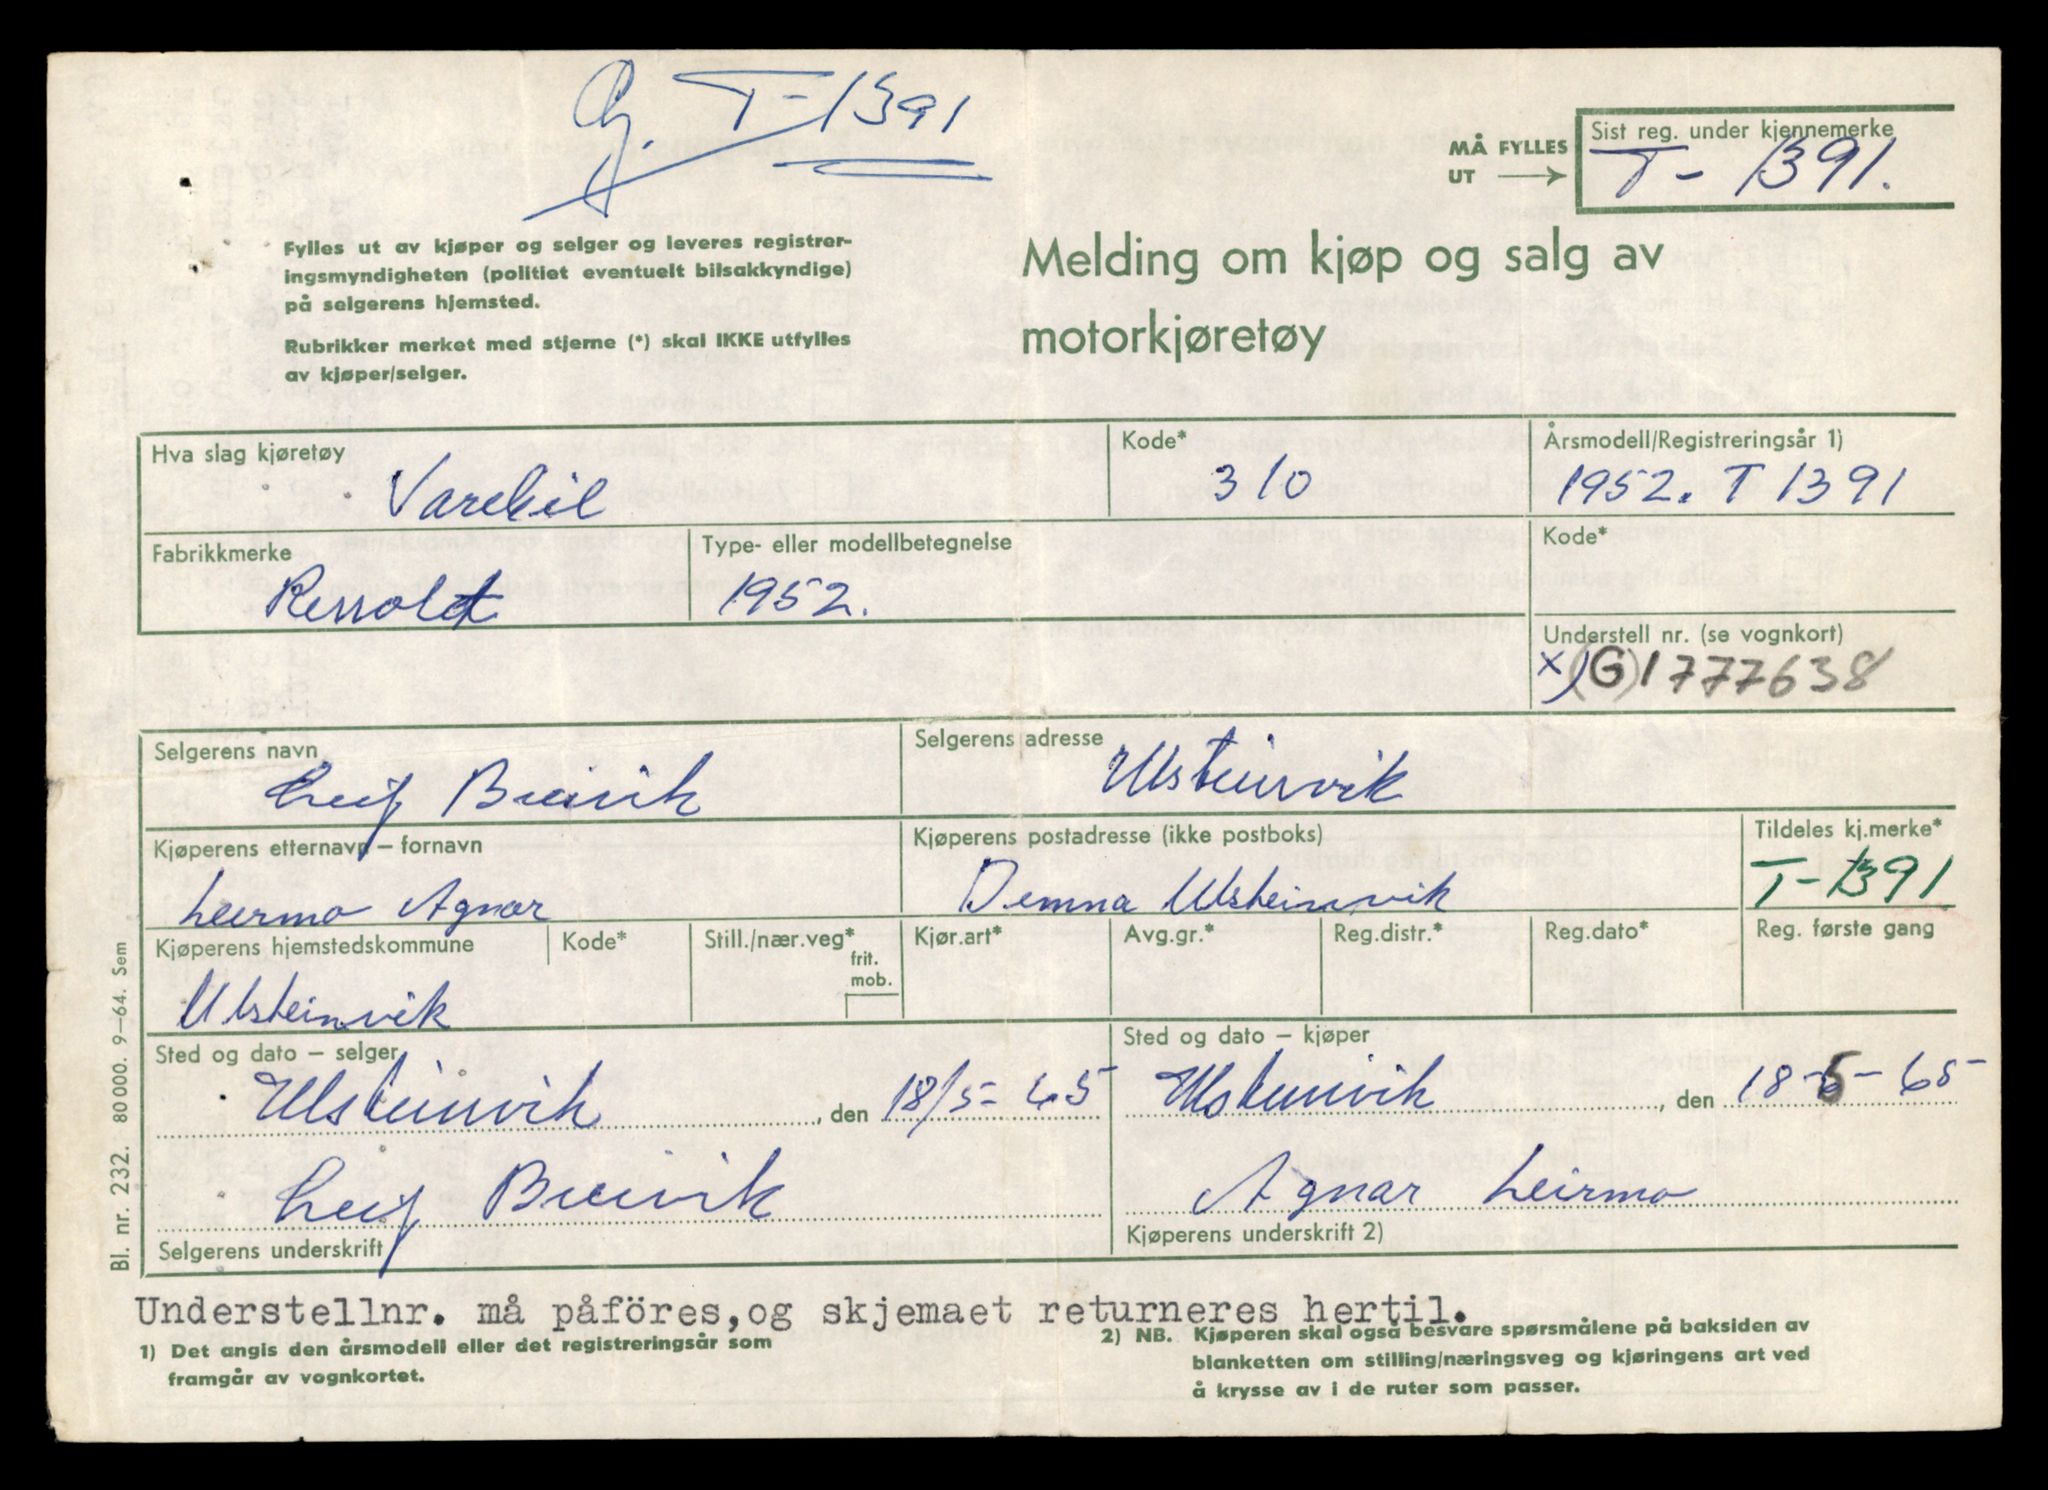 T-1391
MÅ FYLLES
UT
Sist reg. under kjennemerke
T- 1391.
Fylles ut av kjøper og selger og leveres registrer-
ingsmyndigheten (politiet eventuelt bilsakkyndige)
på selgerens hjemsted.
Rubrikker merket med stjerne (*) skal IKKE utfylles
av kjøper/selger.
Melding om kjøp og salg av
motorkjøretøy
Hva slag kjøretøy
Varebil
Kode*
310
Årsmodell/Registreringsår 1)
1952. T 1391
Fabrikkmerke
Type- eller modellbetegnelse
1952.
Kode*
Understell nr. (se vognkort)
x) (G) 1777638
Selgerens navn
Leif Breivik
Selgerens adresse
Ulsteinvik
Kjøperens etternavn – fornavn
Leirmo Agnar
Kjøperens postadresse (ikke postboks)
Demna Ulsteinvik
Tildeles kj.merke*
T-1391
Kjøperens hjemstedskommune
Ulsteinvik
Kode*
Still./nær.veg*
frit.
mob.
Kjør.art*
Avg.gr.*
Reg.distr.*
Reg.dato*
Reg. første gang
Sted og dato – selger
Ulsteinvik, den 18/5-65
Sted og dato – kjøper
Ulsteinvik, den 18-5-65
Leif Breivik
Selgerens underskrift
Agnar Leirmo
Kjøperens underskrift 2)
Understellnr. må påföres,og skjemaet returneres hertil.
1) Det angis den årsmodell eller det registreringsår som
framgår av vognkortet.
2) NB. Kjøperen skal også besvare spørsmålene på baksiden av
blanketten om stilling/næringsveg og kjøringens art ved
å krysse av i de ruter som passer.
Bl. nr. 232. 80 000. 9–64. Sem